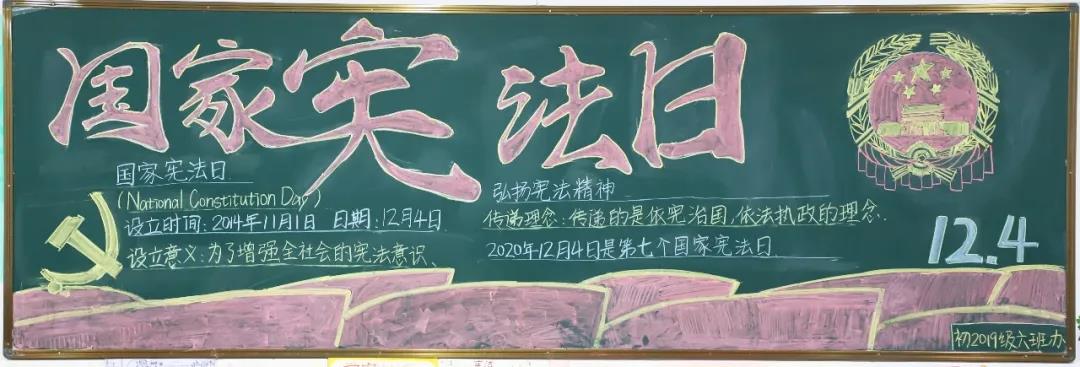 国家宪法日
国家宪法日
(National Constitution Day)
设立时间:2014年11月1日 日期:12月4日
设立意义:为了增强全社会的宪法意识、
弘扬宪法精神
传递理念:传递的是依宪治国,依法执政的理念.
2020年12月4日是第七个国家宪法日
12.4
初2019级六班办